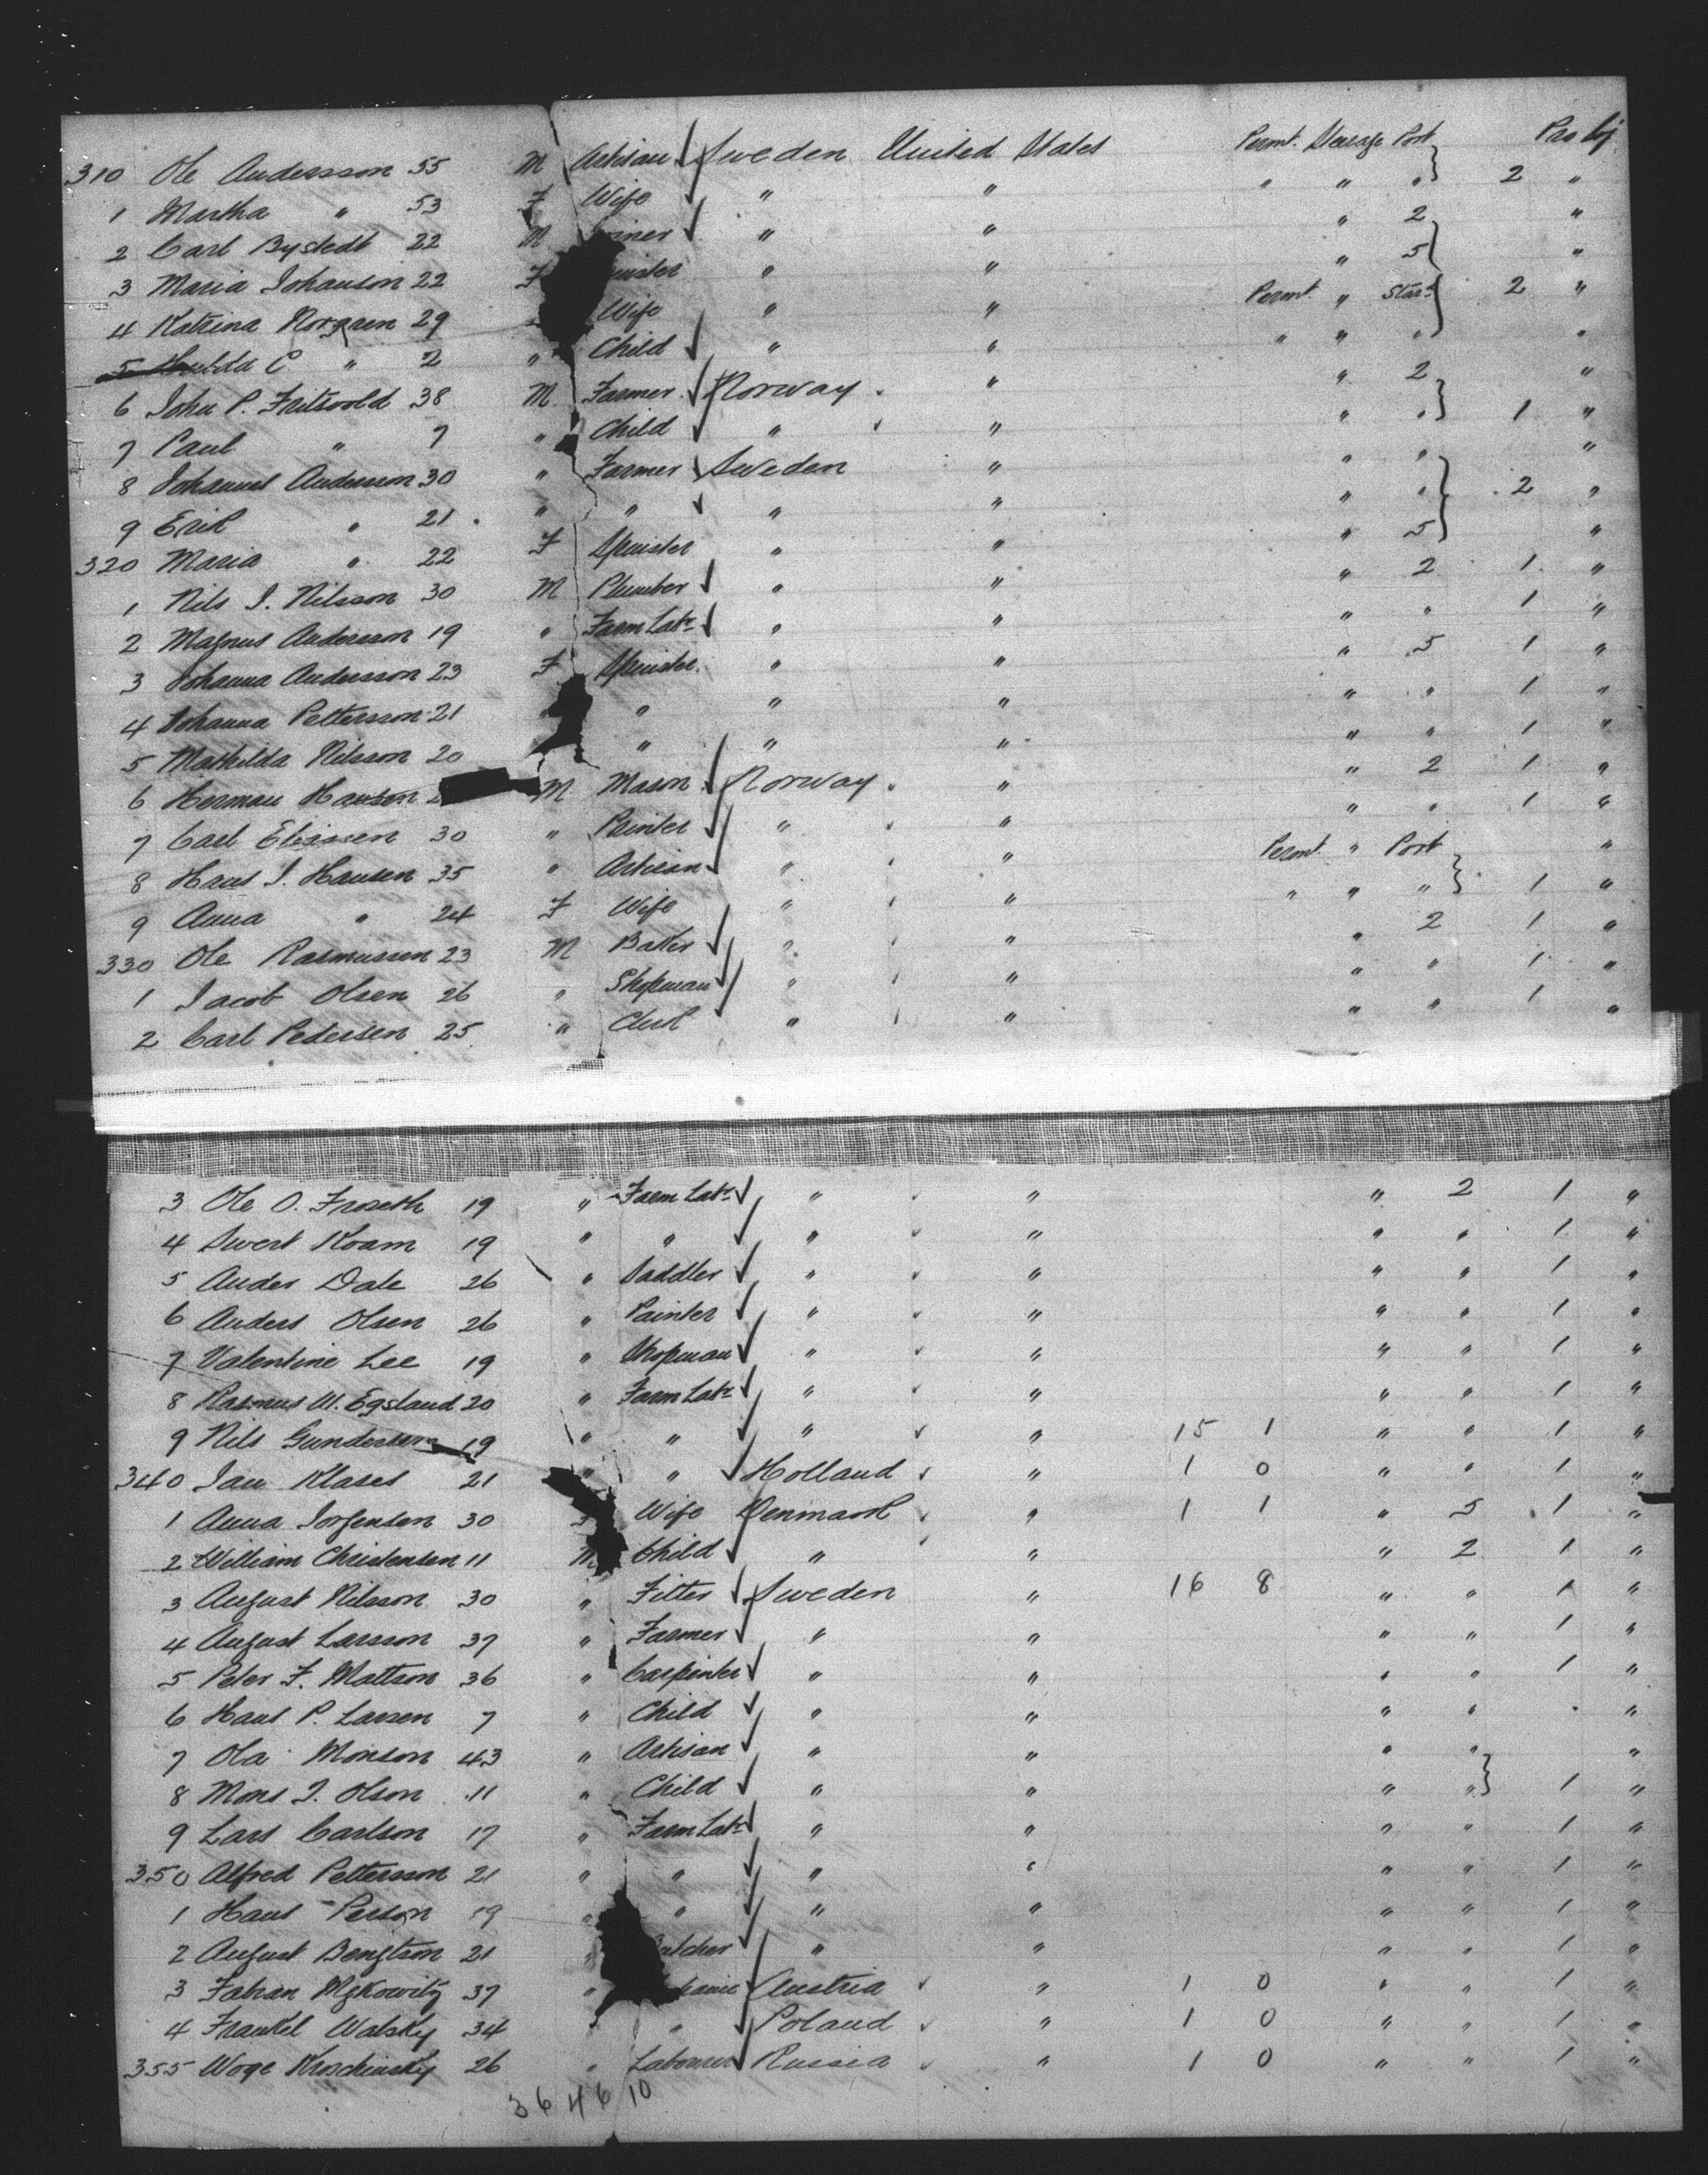 310 Ole Andersson 55 M Artisan Sweden United States Permt. Steerage Port Pro Obj
1 Martha " 53 F Wife " " " " " 2 "
2 Carl Bystedt 22 M " " " 2 "
3 Maria Johanson 22 F " " " 5 "
4 Katrina Norgren 29 Wife " " Permt. " Star. 2 "
5 C " 2 " Child " " " " " "
6 John P. Fritsvold 38 M Farmer Norway " " 2 "
7 Paul " 7 " Child " " " " 1 "
8 Johannes Andersson 30 " Farmer Sweden " " " "
9 Erik " 21 " " " " " " 2 "
320 Maria " 22 F Spinster " " " 5 "
1 Nils J. Nilsson 30 M Plumber " " " 2 1 "
2 Magnus Andersson 19 " Farm Labr " " " " 1 "
3 Johanna Andersson 23 F Spinster " " " 5 1 "
4 Johanna Pettersson 21 " " " " " " 1 "
5 Mathilda Nilsson 20 " " " " " 1 "
6 Herman Hansen M Mason Norway " " 2 1 "
7 Carl Eliassen 30 " Painter " " " " 1 "
8 Hans J. Hansen 35 " Artisan " " Permt. " Port "
9 Anna " 24 F Wife " " " " " 1 "
330 Ole Rasmussen 23 M Baker " " " 2 1 "
1 Jacob Olsen 26 " Shopman " " " " 1 "
2 Carl Pedersen 25 " Clerk " " " " 1 "
3 Ole O. Froseth 19 " Farm Labr " " " 2 1 "
4 Sivert Koam 19 " " " " " " 1 "
5 Ander Dale 26 " Saddler " " " " 1 "
6 Anders Olsen 26 " Painter " " " " 1 "
7 Valentine Lee 19 " Shopman " " " " 1 "
8 Rasmus M. Egsland 20 " Farm Labr " " " " 1 "
9 Nils Gundersen 19 " " " " 15 1 " " 1 "
340 Jan Klases 21 " " Holland " 1 0 " " 1 "
1 Anna Jorgensen 30 F Wife Denmark " 1 1 " 5 1 "
2 William Christensen 11 M Child " " " 2 1 "
3 August Nilsson 30 " Fitter Sweden " 16 8 " " 1 "
4 August Larsson 37 " Farmer " " " " 1 "
5 Peter F. Mattson 36 " Carpenter " " " " 1 "
6 Hans P. Larsen 7 " Child " " " " "
7 Ola Monson 43 " Artisan " " " " "
8 Mons J. Olson 11 " Child " " " " 1 "
9 Lars Carlson 17 " Farm Labr " " " " 1 "
350 Alfred Pettersson 21 " " " " " " 1 "
1 Hans Person 19 " " " " " " 1 "
2 August Bengtson 21 " " " " " 1 "
3 37 " Austria " 1 0 " " 1 "
4 Frankel Walsky 34 " " Poland " 1 0 " " 1 "
355 Woge Kroschinsky 26 " Labourer Russia " 1 0 " " 1 "
36 46 10